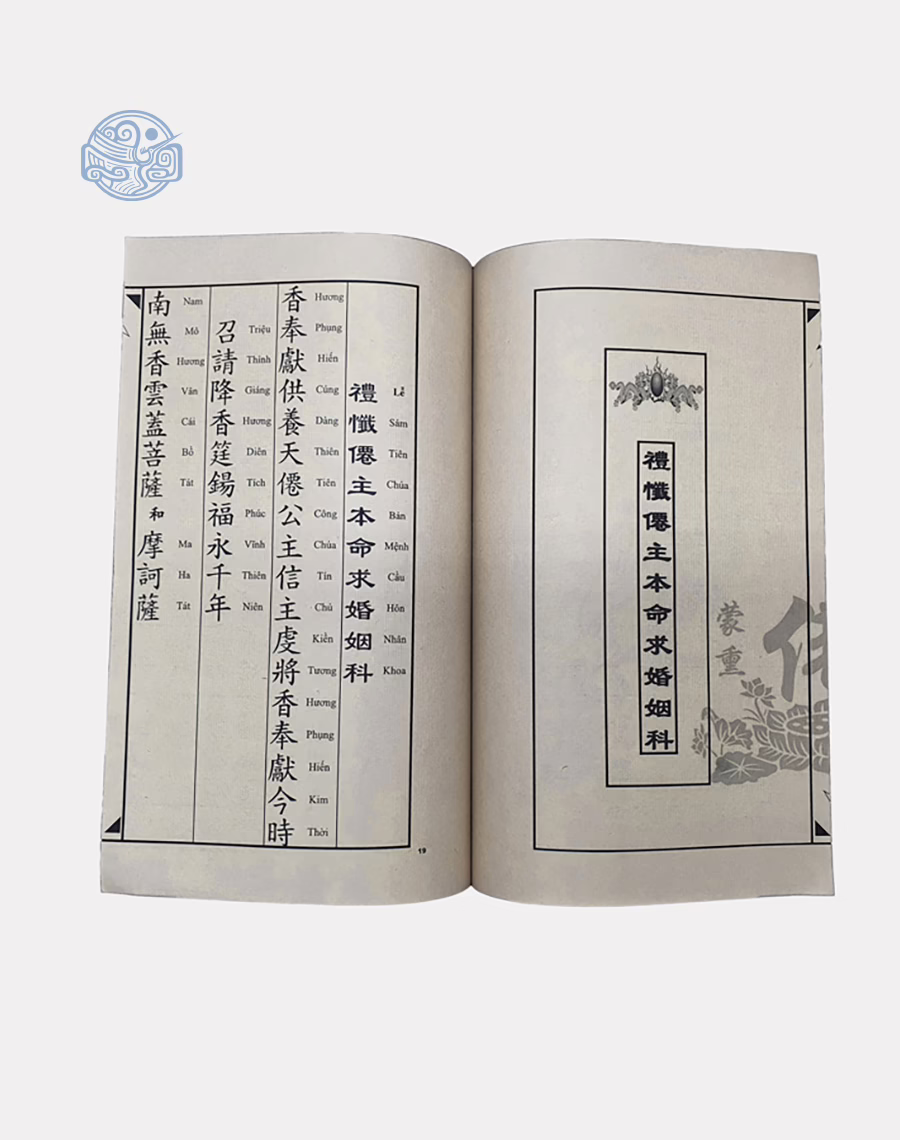 禮懺僊主本命求婚姻科
蒙重
禮懺僊主本命求婚姻科
Lễ Sám Tiên Chúa Bản Mệnh Cầu Hôn Nhân Khoa
香奉獻供養天僊公主信主虔將香奉獻今時
Hương Phụng Hiến Cúng Dàng Thiên Tiên Công Chúa Tín Chủ Kiền Tương Hương Phụng Hiến Kim Thời
召請降香筵錫福永千年
Triệu Thỉnh Giáng Hương Diên Tích Phúc Vĩnh Thiên Niên
南無香雲蓋菩薩和摩訶薩
Nam Mô Hương Vân Cái Bồ Tát Ma Ha Tát
19